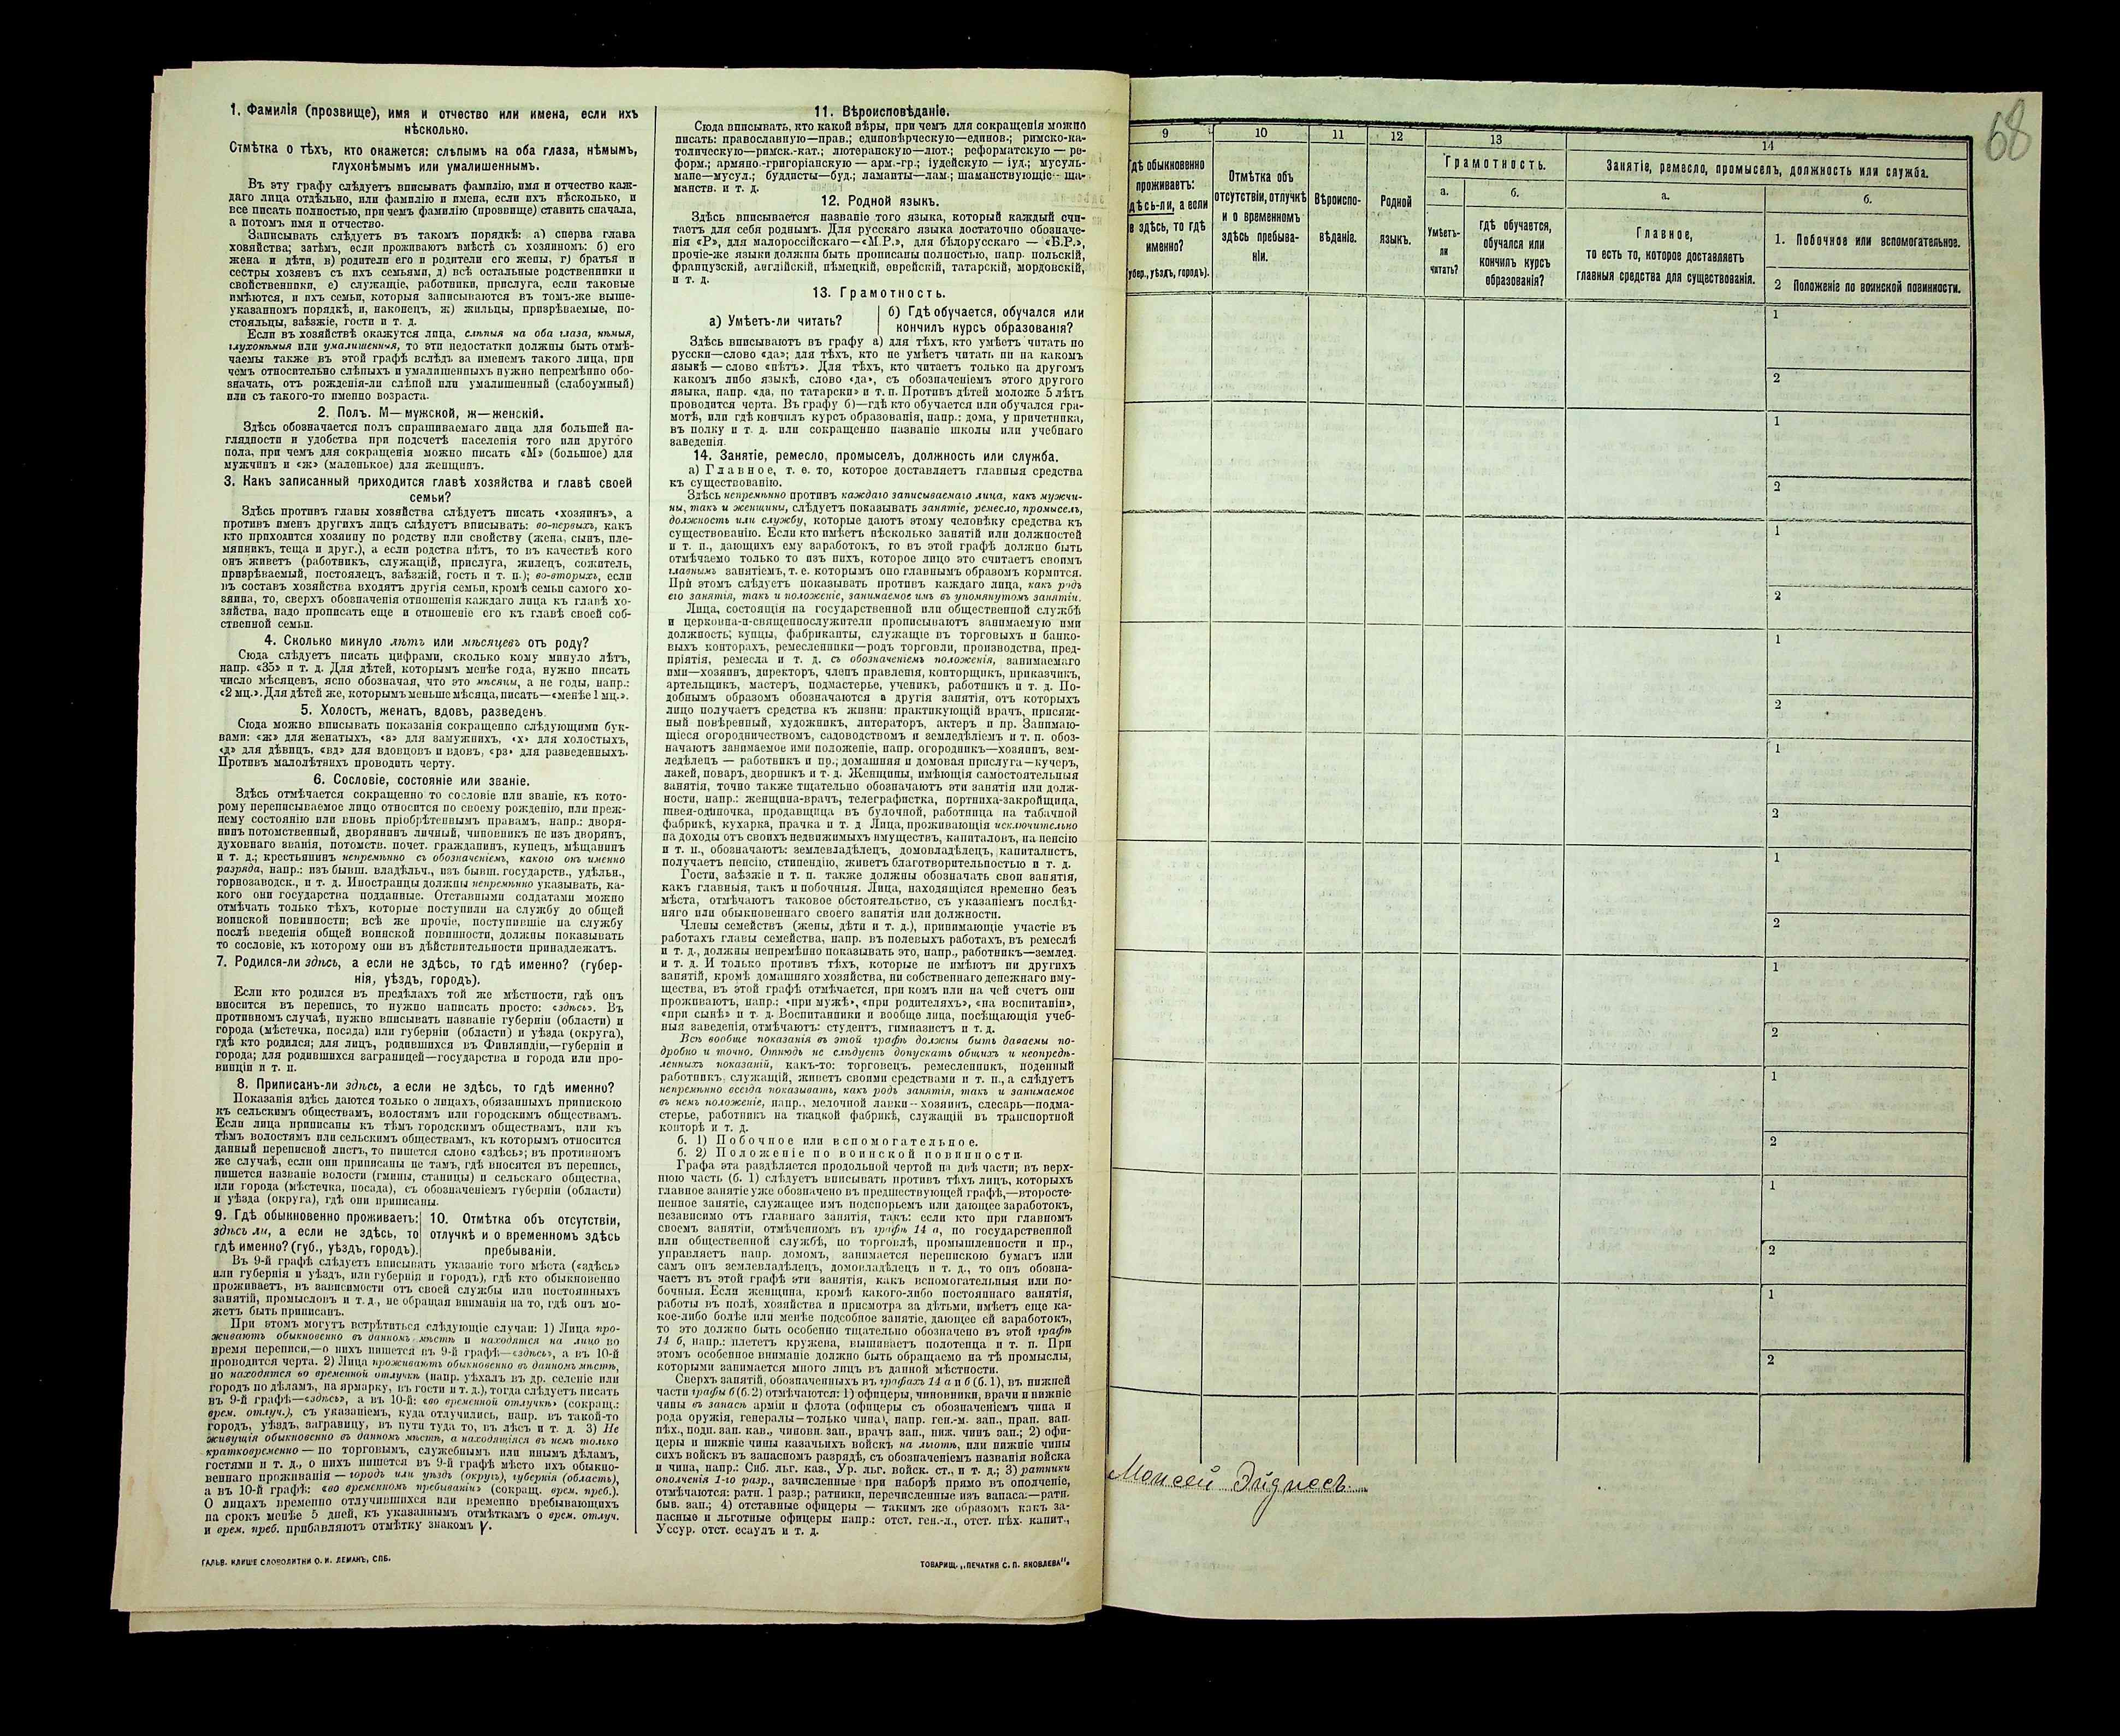 1. Фамилія (прозвище), имя и отчество или имена, если ихъ
нѣсколько.
Отмѣтка о тѣхъ, кто окажется: слѣпымъ на оба глаза, нѣмымъ,
глухонѣмымъ или умалишеннымъ.
Въ эту графу слѣдуетъ вписывать фамилію, имя и отчество каж-
даго лица отдѣльно, или фамилію и имена, если ихъ нѣсколько, и
все писать полностью, при чемъ фамилію (прозвище) ставить сначала,
а потомъ имя и отчество.
Записывать слѣдуетъ въ такомъ порядкѣ: а) сперва глава
хозяйства; затѣмъ, если проживаютъ вмѣстѣ съ хозяиномъ: б) его
жена и дѣти, в) родители его и родители его жены, г) братья и
сестры хозяевъ съ ихъ семьями, д) всѣ остальные родственники и
свойственники, е) служащіе, работники, прислуга, если таковые
имѣются, и ихъ семьи, которыя записываются въ томъ-же выше-
указанномъ порядкѣ, и, наконецъ, ж) жильцы, призрѣваемые, по-
стояльцы, заѣзжіе, гости и т. д.
Если въ хозяйствѣ окажутся лица, слѣпыя на оба глаза, нѣмыя,
глухонѣмыя или умалишенныя, то эти недостатки должны быть отмѣ-
чаемы также въ этой графѣ вслѣдъ за именемъ такого лица, при
чемъ относительно слѣпыхъ и умалишенныхъ нужно непремѣнно обо-
значать, отъ рожденія-ли слѣпой или умалишенный (слабоумный)
или съ такого-то именно возраста.
2. Полъ. М—мужской, ж—женскій.
Здѣсь обозначается полъ спрашиваемаго лица для большей на-
глядности и удобства при подсчетѣ населенія того или другого
пола, при чемъ для сокращенія можно писать «М» (большое) для
мужчинъ и «ж» (маленькое) для женщинъ.
3. Какъ записанный приходится главѣ хозяйства и главѣ своей
семьи?
Здѣсь противъ главы хозяйства слѣдуетъ писать «хозяинъ», а
противъ именъ другихъ лицъ слѣдуетъ вписывать: во-первыхъ, какъ
кто приходится хозяину по родству или свойству (жена, сынъ, пле-
мянникъ, теща и друг.), а если родства нѣтъ, то въ качествѣ кого
онъ живетъ (работникъ, служащій, прислуга, жилецъ, сожитель,
призрѣваемый, постоялецъ, заѣзжій, гость и т. п.); во-вторыхъ, если
въ составъ хозяйства входятъ другія семьи, кромѣ семьи самого хо-
зяина, то, сверхъ обозначенія отношенія каждаго лица къ главѣ хо-
зяйства, надо прописать еще и отношеніе его къ главѣ своей соб-
ственной семьи.
4. Сколько минуло лѣтъ или мѣсяцевъ отъ роду?
Сюда слѣдуетъ писать цифрами, сколько кому минуло лѣтъ,
напр. «35» и т. д. Для дѣтей, которымъ менѣе года, нужно писать
число мѣсяцевъ, ясно обозначая, что это мѣсяцы, а не годы, напр.:
«2 мц.». Для дѣтей же, которымъ меньше мѣсяца, писать—«менѣе 1 мц.».
5. Холостъ, женатъ, вдовъ, разведенъ.
Сюда можно вписывать показанія сокращенно слѣдующими бук-
вами: «ж» для женатыхъ, «з» для замужнихъ, «х» для холостыхъ,
«д» для дѣвицъ, «вд» для вдовцовъ и вдовъ, «рз» для разведенныхъ.
Противъ малолѣтнихъ проводить черту.
6. Сословіе, состояніе или званіе.
Здѣсь отмѣчается сокращенно то сословіе или званіе, къ кото-
рому переписываемое лицо относится по своему рожденію, или преж-
нему состоянію или вновь пріобрѣтеннымъ правамъ, напр.: дворя-
нинъ потомственный, дворянинъ личный, чиновникъ не изъ дворянъ,
духовнаго званія, потомств. почет. гражданинъ, купецъ, мѣщанинъ
и т. д.; крестьянинъ непремѣнно съ обозначеніемъ, какого онъ именно
разряда, напр.: изъ бывш. владѣльч., изъ бывш. государств., удѣльн.,
горнозаводск., и т. д. Иностранцы должны непремѣнно указывать, ка-
кого они государства подданные. Отставными солдатами можно
отмѣчать только тѣхъ, которые поступили на службу до общей
воинской повинности; всѣ же прочіе, поступившіе на службу
послѣ введенія общей воинской повинности, должны показывать
то сословіе, къ которому они въ дѣйствительности принадлежатъ.
7. Родился-ли здѣсь, а если не здѣсь, то гдѣ именно? (губер-
нія, уѣздъ, городъ).
Если кто родился въ предѣлахъ той же мѣстности, гдѣ онъ
вносится въ перепись, то нужно написать просто: «здѣсь». Въ
противномъ случаѣ, нужно вписывать названіе губерніи (области) и
города (мѣстечка, посада) или губерніи (области) и уѣзда (округа),
гдѣ кто родился; для лицъ, родившихся въ Финляндіи,—губерніи и
города; для родившихся заграницей—государства и города или про-
винціи и т. п.
8. Приписанъ-ли здѣсь, а если не здѣсь, то гдѣ именно?
Показанія здѣсь даются только о лицахъ, обязанныхъ припискою
къ сельскимъ обществамъ, волостямъ или городскимъ обществамъ.
Если лица приписаны къ тѣмъ городскимъ обществамъ, или къ
тѣмъ волостямъ или сельскимъ обществамъ, къ которымъ относится
данный переписной листъ, то пишется слово «здѣсь»; въ противномъ
же случаѣ, если они приписаны не тамъ, гдѣ вносятся въ перепись,
пишется названіе волости (гмины, станицы) и сельскаго общества,
или города (мѣстечка, посада), съ обозначеніемъ губерніи (области)
и уѣзда (округа), гдѣ они приписаны.
9. Гдѣ обыкновенно проживаетъ:
здѣсь ли, а если не здѣсь, то
гдѣ именно? (губ., уѣздъ, городъ).
10. Отмѣтка объ отсутствіи,
отлучкѣ и о временномъ здѣсь
пребываніи.
Въ 9-й графѣ слѣдуетъ вписывать указаніе того мѣста («здѣсь»
или губернія и уѣздъ, или губернія и городъ), гдѣ кто обыкновенно
проживаетъ, въ зависимости отъ своей службы или постоянныхъ
занятій, промысловъ и т. д., не обращая вниманія на то, гдѣ онъ мо-
жетъ быть приписанъ.
При этомъ могутъ встрѣтиться слѣдующіе случаи: 1) Лица про-
живаютъ обыкновенно въ данномъ мѣстѣ и находятся на лицо во
время переписи,—о нихъ пишется въ 9-й графѣ—«здѣсь», а въ 10-й
проводится черта. 2) Лица проживаютъ обыкновенно въ данномъ мѣстѣ,
но находятся во временной отлучкѣ (напр. уѣхалъ въ др. селеніе или
городъ по дѣламъ, на ярмарку, въ гости и т. д.), тогда слѣдуетъ писать
въ 9-й графѣ—«здѣсь», а въ 10-й: «во временной отлучкѣ» (сокращ.:
врем. отлуч.), съ указаніемъ, куда отлучились, напр. въ такой-то
городъ, уѣздъ, заграницу, въ пути туда то, въ лѣсъ и т. д. 3) Не
живущія обыкновенно въ данномъ мѣстѣ, а находящіяся въ немъ только
кратковременно — по торговымъ, служебнымъ или инымъ дѣламъ,
гостями и т. д., о нихъ пишется въ 9-й графѣ мѣсто ихъ обыкно-
веннаго проживанія — городъ или уѣздъ (округъ), губернія (область),
а въ 10-й графѣ: «во временномъ пребываніи» (сокращ. врем. преб.).
О лицахъ временно отлучившихся или временно пребывающихъ
на срокъ менѣе 5 дней, къ указаннымъ отмѣткамъ о врем. отлуч.
и врем. преб. прибавляютъ отмѣтку знакомъ V.
ГАЛЬВ. КЛИШЕ СЛОВОЛИТНИ О. И. ЛЕМАНЪ, СПБ.
11. Вѣроисповѣданіе.
Сюда вписывать, кто какой вѣры, при чемъ для сокращенія можно
писать: православную—прав.; единовѣрческую—единов.; римско-ка-
толическую—римск.-кат.; лютеранскую—лют.; реформатскую — ре-
форм.; армяно-григоріанскую — арм.-гр.; іудейскую — іуд.; мусуль-
мане—мусул.; буддисты—буд.; ламаиты—лам.; шаманствующіе—ша-
манств. и т. д.
12. Родной языкъ.
Здѣсь вписывается названіе того языка, который каждый счи-
таетъ для себя роднымъ. Для русскаго языка достаточно обозначе-
нія «Р», для малороссійскаго—«М.Р.», для бѣлорусскаго — «Б.Р.»,
прочіе-же языки должны быть прописаны полностью, напр. польскій,
французскій, англійскій, нѣмецкій, еврейскій, татарскій, мордовскій,
и т. д.
13. Грамотность.
а) Умѣетъ-ли читать?
б) Гдѣ обучается, обучался или
кончилъ курсъ образованія?
Здѣсь вписываютъ въ графу а) для тѣхъ, кто умѣетъ читать по
русски—слово «да»; для тѣхъ, кто не умѣетъ читать ни на какомъ
языкѣ — слово «нѣтъ». Для тѣхъ, кто читаетъ только на другомъ
какомъ либо языкѣ, слово «да», съ обозначеніемъ этого другого
языка, напр. «да, по татарски» и т. п. Противъ дѣтей моложе 5 лѣтъ
проводится черта. Въ графу б)—гдѣ кто обучается или обучался гра-
мотѣ, или гдѣ кончилъ курсъ образованія, напр.: дома, у причетника,
въ полку и т. д. или сокращенно названіе школы или учебнаго
заведенія.
14. Занятіе, ремесло, промыселъ, должность или служба.
а) Главное, т. е. то, которое доставляетъ главныя средства
къ существованію.
Здѣсь непремѣнно противъ каждаго записываемаго лица, какъ мужчи-
ны, такъ и женщины, слѣдуетъ показывать занятіе, ремесло, промыселъ,
должность или службу, которые даютъ этому человѣку средства къ
существованію. Если кто имѣетъ нѣсколько занятій или должностей
и т. п., дающихъ ему заработокъ, то въ этой графѣ должно быть
отмѣчаемо только то изъ нихъ, которое лицо это считаетъ своимъ
главнымъ занятіемъ, т. е. которымъ оно главнымъ образомъ кормится.
При этомъ слѣдуетъ показывать противъ каждаго лица, какъ родъ
его занятія, такъ и положеніе, занимаемое имъ въ упомянутомъ занятіи.
Лица, состоящія на государственной или общественной службѣ
и церковно-и-священнослужители прописываютъ занимаемую ими
должность; купцы, фабриканты, служащіе въ торговыхъ и банко-
выхъ конторахъ, ремесленники—родъ торговли, производства, пред-
пріятія, ремесла и т. д. съ обозначеніемъ положенія, занимаемаго
ими—хозяинъ, директоръ, членъ правленія, конторщикъ, приказчикъ,
артельщикъ, мастеръ, подмастерье, ученикъ, работникъ и т. д. По-
добнымъ образомъ обозначаются и другія занятія, отъ которыхъ
лицо получаетъ средства къ жизни: практикующій врачъ, присяж-
ный повѣренный, художникъ, литераторъ, актеръ и пр. Занимаю-
щіеся огородничествомъ, садоводствомъ и земледѣліемъ и т. п. обоз-
начаютъ занимаемое ими положеніе, напр. огородникъ—хозяинъ, зем-
ледѣлецъ — работникъ и пр.; домашняя и домовая прислуга—кучеръ,
лакей, поваръ, дворникъ и т. д. Женщины, имѣющія самостоятельныя
занятія, точно также тщательно обозначаютъ эти занятія или долж-
ности, напр.: женщина-врачъ, телеграфистка, портниха-закройщица,
швея-одиночка, продавщица въ булочной, работница на табачной
фабрикѣ, кухарка, прачка и т. д. Лица, проживающія исключительно
на доходы отъ своихъ недвижимыхъ имуществъ, капиталовъ, на пенсію
и т. п., обозначаютъ: землевладѣлецъ, домовладѣлецъ, капиталистъ,
получаетъ пенсію, стипендію, живетъ благотворительностью и т. д.
Гости, заѣзжіе и т. п. также должны обозначать свои занятія,
какъ главныя, такъ и побочныя. Лица, находящіяся временно безъ
мѣста, отмѣчаютъ таковое обстоятельство, съ указаніемъ послѣд-
няго или обыкновеннаго своего занятія или должности.
Члены семействъ (жены, дѣти и т. д.), принимающіе участіе въ
работахъ главы семейства, напр. въ полевыхъ работахъ, въ ремеслѣ
и т. д., должны непремѣнно показывать это, напр., работникъ—землед.
и т. д. И только противъ тѣхъ, которые не имѣютъ ни другихъ
занятій, кромѣ домашняго хозяйства, ни собственнаго денежнаго иму-
щества, въ этой графѣ отмѣчается, при комъ или на чей счетъ они
проживаютъ, напр.: «при мужѣ», «при родителяхъ», «на воспитаніи»,
«при сынѣ» и т. д. Воспитанники и вообще лица, посѣщающія учеб-
ныя заведенія, отмѣчаютъ: студентъ, гимназистъ и т. д.
Всѣ вообще показанія въ этой графѣ должны быть даваемы по-
дробно и точно. Отнюдь не слѣдуетъ допускать общихъ и неопредѣ-
ленныхъ показаній, какъ-то: торговецъ, ремесленникъ, поденный
работникъ, служащій, живетъ своими средствами и т. п., а слѣдуетъ
непремѣнно всегда показывать, какъ родъ занятія, такъ и занимаемое
въ немъ положеніе, напр., мелочной лавки—хозяинъ, слесарь—подма-
стерье, работникъ на ткацкой фабрикѣ, служащій въ транспортной
конторѣ и т. д.
б. 1) Побочное или вспомогательное.
б. 2) Положеніе по воинской повинности.
Графа эта раздѣляется продольной чертой на двѣ части; въ верх-
нюю часть (б. 1) слѣдуетъ вписывать противъ тѣхъ лицъ, которыхъ
главное занятіе уже обозначено въ предшествующей графѣ,—второсте-
пенное занятіе, служащее имъ подспорьемъ или дающее заработокъ,
независимо отъ главнаго занятія, такъ: если кто при главномъ
своемъ занятіи, отмѣченномъ въ графѣ 14 а, по государственной
или общественной службѣ, по торговлѣ, промышленности и пр.,
управляетъ напр. домомъ, занимается перепискою бумагъ или
самъ онъ землевладѣлецъ, домовладѣлецъ и т. д., то онъ обозна-
чаетъ въ этой графѣ эти занятія, какъ вспомогательныя или по-
бочныя. Если женщина, кромѣ какого-либо постояннаго занятія,
работы въ полѣ, хозяйства и присмотра за дѣтьми, имѣетъ еще ка-
кое-либо болѣе или менѣе подсобное занятіе, дающее ей заработокъ,
то это должно быть особенно тщательно обозначено въ этой графѣ
14 б, напр.: плететъ кружева, вышиваетъ полотенца и т. п. При
этомъ особенное вниманіе должно быть обращаемо на тѣ промыслы,
которыми занимается много лицъ въ данной мѣстности.
Сверхъ занятій, обозначенныхъ въ графахъ 14 а и б (б. 1), въ нижней
части графы б (б. 2) отмѣчаются: 1) офицеры, чиновники, врачи и нижніе
чины въ запасѣ арміи и флота (офицеры съ обозначеніемъ чина и
рода оружія, генералы—только чина), напр. ген.-м. зап., прап. зап.
пѣх., подп. зап. кав., чиновн. зап., врачъ зап., ниж. чинъ зап.; 2) офи-
церы и нижніе чины казачьихъ войскъ на льготѣ, или нижніе чины
сихъ войскъ въ запасномъ разрядѣ, съ обозначеніемъ названія войска
и чина, напр.: Сиб. льг. каз., Ур. льг. войск. ст., и т. д.; 3) ратники
ополченія 1-го разр., зачисленные при наборѣ прямо въ ополченіе,
отмѣчаются: ратн. 1 разр.; ратники, перечисленные изъ запаса:—ратн.
быв. зап.; 4) отставные офицеры — такимъ же образомъ какъ за-
пасные и льготные офицеры напр.: отст. ген.-л., отст. пѣх. капит.,
Уссур. отст. есаулъ и т. д.
ТОВАРИЩ. „ПЕЧАТНЯ С. П. ЯКОВЛЕВА".
68
9 10 11 12 13 14
Гдѣ обыкновенно
проживаетъ:
здѣсь-ли, а если
не здѣсь, то гдѣ
именно?
(губер., уѣздъ, городъ).
Отмѣтка объ
отсутствіи, отлучкѣ
и о временномъ
здѣсь пребыва-
ніи.
Вѣроиспо-
вѣданіе.
Родной
языкъ.
Грамотность.
а.
Умѣетъ-
ли
читать?
б.
гдѣ обучается,
обучался или
кончилъ курсъ
образованія?
Занятіе, ремесло, промыселъ, должность или служба.
а.
Главное,
то есть то, которое доставляетъ
главныя средства для существованія.
б.
1. Побочное или вспомогательное.
2 Положеніе по воинской повинности.
1
2
1
2
1
2
1
2
1
2
1
2
1
2
1
2
1
2
1
2
Моисей Эйднесъ